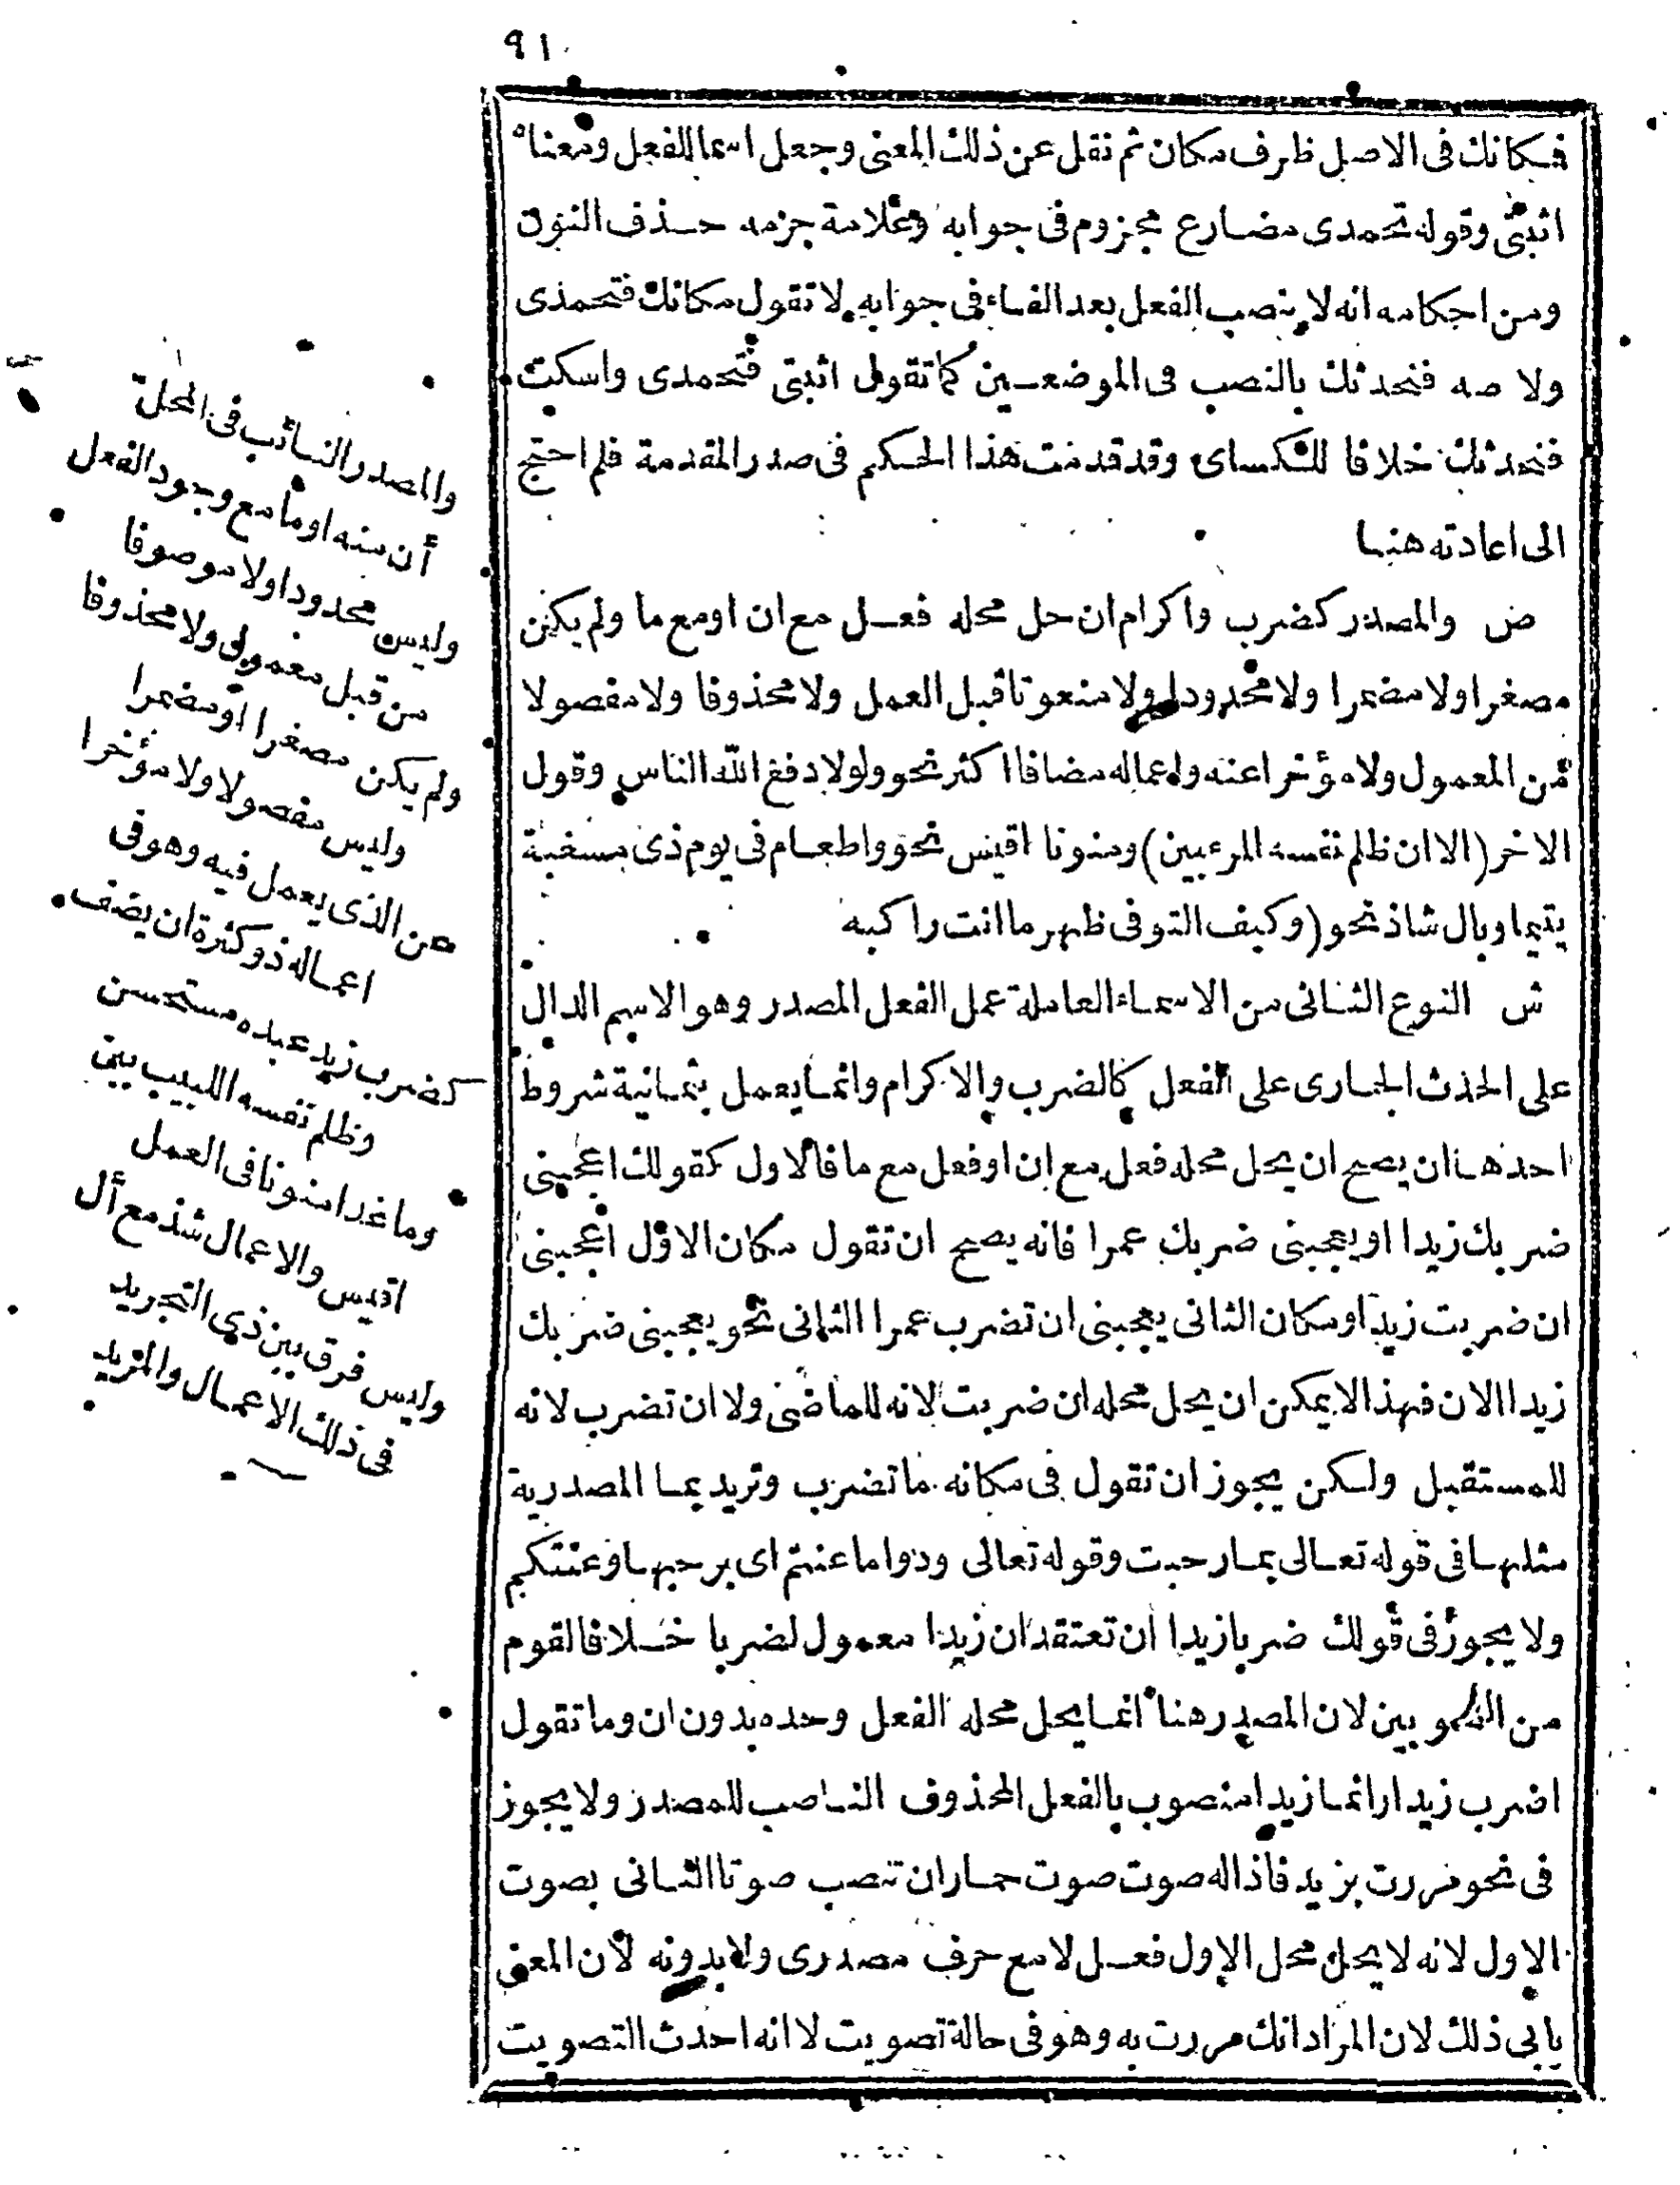 ٩١
فمكانك فى الاصل ظرف مكان ثم نقل عن ذلك المعنى وجعل اسما للفعل ومعناه
اثبتى وقوله تحمدى مضارع مجزوم فى جوابه وعلامة جزمه حذف النون
ومن احكامه انه لا ينصب الفعل بعد الفاء فى جوابه لا تقول مكانك فتحمدى
ولا صه فنحدثك بالنصب فى الموضعين كما تقول اثبتى فتحمدى واسكت
فنحدثك خلافا للكساى وقد قدمت هذا الحكم فى صدر المقدمة فلم احتج
الى اعادته هنا
ض والمصدر كضرب واكرام ان حل محله فعل مع ان او مع ما ولم يكن
مصغرا ولا مضمرا ولا محدودا ولا منعوتا قبل العمل ولا محذوفا ولا مفصولا
من المعمول ولا مؤخرا عنه واعماله مضافا اكثر نحو ولولا دفع الله الناس وقول
الاخر (الا ان ظلم نفسه المرء بين) ومنونا اقيس نحو واطعام فى يوم ذى مسغبة
يتيما وبال شاذ نحو (وكيف التوفى ظهر ما انت راكبه
ش النوع الثانى من الاسماء العاملة عمل الفعل المصدر وهو الاسم الدال
على الحدث الجارى على الفعل كالضرب والاكرام وانما يعمل بثمانية شروط
احدها ان يصح ان يحل محله فعل مع ان او فعل مع ما فالاول كقولك اعجبنى
ضربك زيدا او يعجبنى ضربك عمرا فانه يصح ان تقول مكان الاول اعجبنى
ان ضربت زيدا ومكان الثانى يعجبنى ان تضرب عمرا الثانى نحو يعجبنى ضربك
زيدا الان فهذا لا يمكن ان يحل محله ان ضربت لانه للماضى ولا ان تضرب لانه
للمستقبل ولكن يجوز ان تقول فى مكانه ما تضرب وتريد بما المصدرية
مثلها فى قوله تعالى بما رحبت وقوله تعالى ودوا ما عنتم اى برحبها وعنتكم
ولا يجوز فى قولك ضربا زيدا ان تعتقد ان زيدا معمول لضربا خلافا لقوم
من النحويين لان المصدر هنا انما يحل محله الفعل وحده بدون ان وما تقول
اضرب زيدا وانما زيدا منصوب بالفعل المحذوف الناصب للمصدر ولا يجوز
فى نحو مررت بزيد فاذا له صوت صوت حمار ان تنصب صوتا الثانى بصوت
الاول لانه لا يحل محل الاول فعل لا مع حرف مصدرى ولا بدونه لأن المعنى
يابى ذلك لان المراد انك مررت به وهو فى حالة تصويت لا انه احدث التصويت
والمصدر النائب فى المحل
أن منه او ما مع وجود الفعل
وليس محدودا ولا موصوفا
من قبل معمول ولا محذوفا
ولم يكن مصغرا او مضمرا
وليس مفصولا ولا مؤخرا
عن الذى يعمل فيه وهو فى
اعماله ذو كثرة ان يضف
كضرب زيد عبده مستحسن
وظلم نفسه اللبيب بين
وما غدا منونا فى العمل
اقيس والاعمال شذ مع أل
وليس فرق بين ذى التجريد
فى ذلك الاعمال والمزيد